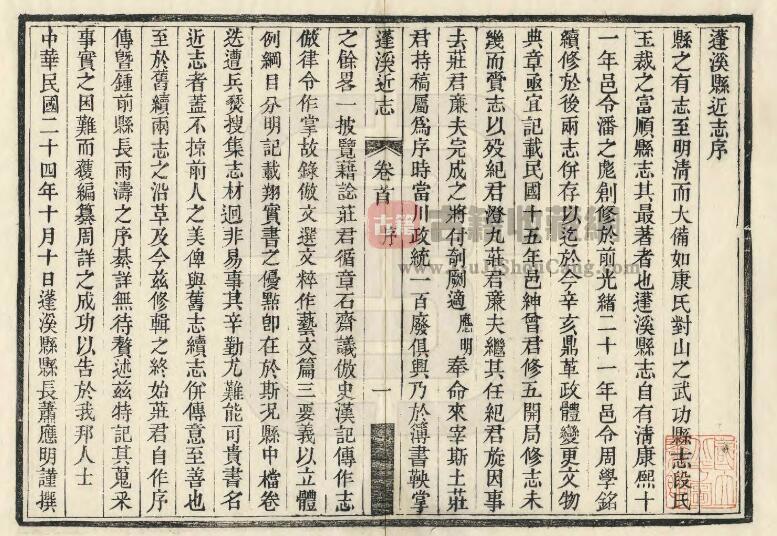 蓬溪縣近志序
縣之有志至明清而大備如康氏對山之武功縣志段氏
玉裁之富順縣志其最著者也蓬溪縣志自有清康熙十
一年邑令潘之彪創修於前光緒二十一年邑令周學銘
續修於後兩志併存以迄於今辛亥鼎革政體變更文物
典章亟宜記載民國十五年邑紳曾君修五開局修志未
幾而賫志以歿紀君澄九莊君亷夫繼其任紀君旋因事
去莊君亷夫完成之將付剞劂適應明奉命來宰斯土莊
君持稿屬為序時當川政統一百廢俱興乃於簿書鞅掌
蓬溪近志 卷首 序 一
之餘畧一披覽藉諗莊君循章石齋議倣史漢記傳作志
倣律令作掌故錄倣文選文粹作藝文篇三要義以立體
例綱目分明記載翔實書之優點卽在於斯况縣中檔卷
迭遭兵燹搜集志材迥非易事其辛勤尤難能可貴書名
近志者蓋不掠前人之美俾與舊志續志併傳意至善也
至於舊續兩志之沿革及今茲修輯之終始莊君自作序
傳曁鍾前縣長雨濤之序綦詳無待贅述茲特記其蒐采
事實之困難而獲編纂周詳之成功以告於我邦人士
中華民國二十四年十月十日蓬溪縣縣長蕭應明謹撰
古籍收藏網